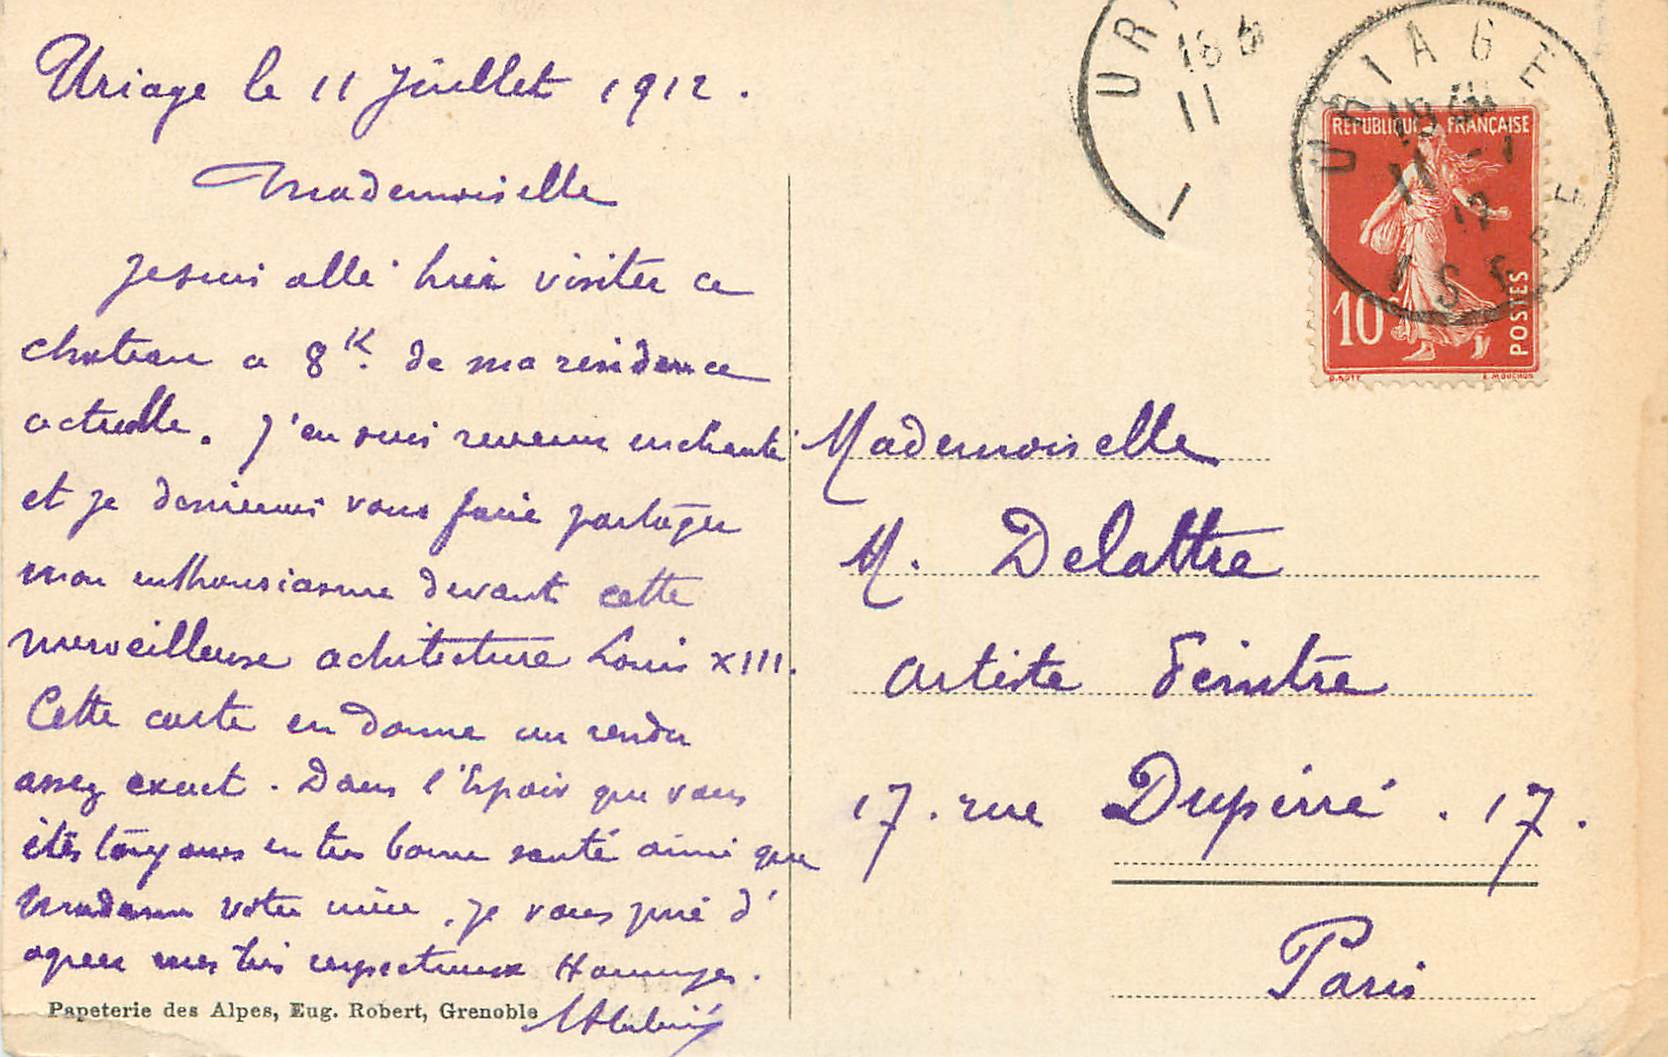 Uriage le 11 Juillet 1912.
Mademoiselle
Je suis allé hier visiter ce
chateau a 8 K. de ma residence
actuelle. J'en suis revenu enchanté
et je desirerais vous faire partager
mon enthousiasme devant cette
merveilleuse achitecture Louis XIII.
Cette carte en donne un rendu
assez exact. Dans l'Espoir que vous
étes toujours en tres bonne santé ainsi que
Madame votre mère, je vous prie d'
agreer mes très respectueux Hommages.
Papeterie des Alpes, Eug. Robert, Grenoble
UR
18
11
URIAGE
11 - 7
12
ISERE
REPUBLIQUE FRANÇAISE
10c
POSTES
O. ROTY
E. MOUCHON
Mademoiselle
M. Delattre
artiste Peintre
17. rue Duperré. 17.
Paris